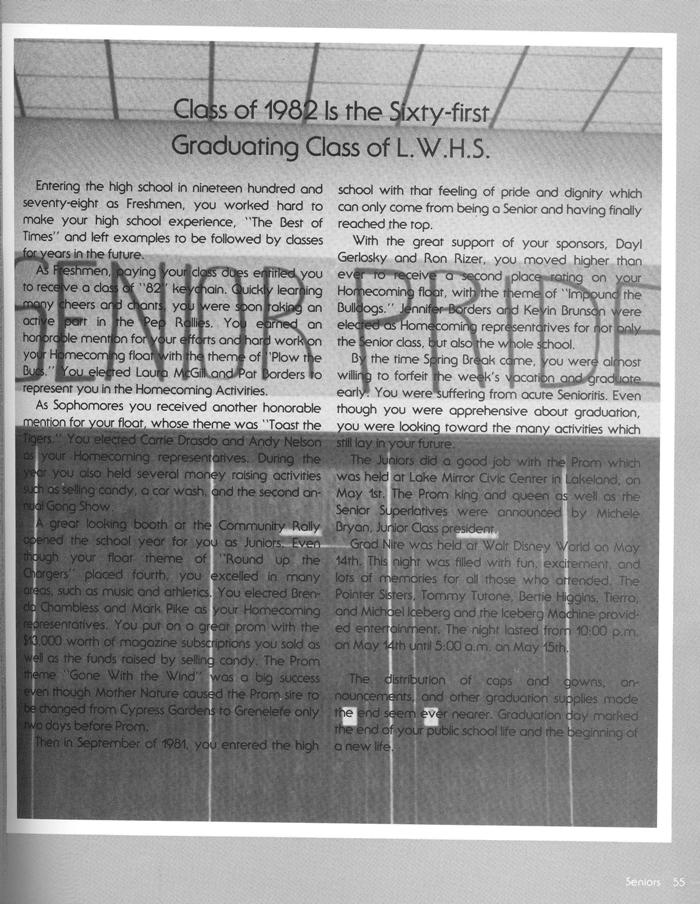 Class of 1982 Is the Sixty-first
Graduating Class of L.W.H.S.
Entering the high school in nineteen hundred and
seventy-eight as Freshmen, you worked hard to
make your high school experience, "The Best of
Times" and left examples to be followed by classes
for years in the future.
As Freshmen, paying your class dues entitled you
to receive a class of "82" keychain. Quickly learning
many cheers and chants, you were soon taking an
active part in the Pep Rallies. You earned an
honorable mention for your efforts and hard work on
your Homecoming float with the theme of "Plow the
Bucs." You elected Laura McGill and Pat Borders to
represent you in the Homecoming Activities.
As Sophomores you received another honorable
mention for your float, whose theme was "Toast the
Tigers." You elected Carrie Drasdo and Andy Nelson
as your Homecoming representatives. During the
year you also held several money raising activities
such as selling candy, a car wash, and the second an-
nual Gong Show.
A great looking booth at the Community Rally
opened the school year for you as Juniors. Even
though your float theme of "Round up the
Chargers" placed fourth, you excelled in many
areas, such as music and athletics. You elected Bren-
da Chambless and Mark Pike as your Homecoming
representatives. You put on a great prom with the
$13,000 worth of magazine subscriptions you sold as
well as the funds raised by selling candy. The Prom
theme "Gone With the Wind" was a big success
even though Mother Nature caused the Prom site to
be changed from Cypress Gardens to Grenelefe only
two days before Prom.
Then in September of 1981, you entered the high
school with that feeling of pride and dignity which
can only come from being a Senior and having finally
reached the top.
With the great support of your sponsors, Dayl
Gerlosky and Ron Rizer, you moved higher than
ever to receive a second place rating on your
Homecoming float, with the theme of "Impound the
Bulldogs." Jennifer Borders and Kevin Brunson were
elected as Homecoming representatives for not only
the Senior class, but also the whole school.
By the time Spring Break came, you were almost
willing to forfeit the week's vacation and graduate
early. You were suffering from acute Senioritis. Even
though you were apprehensive about graduation,
you were looking toward the many activities which
still lay in your future.
The Juniors did a good job with the Prom which
was held at Lake Mirror Civic Center in Lakeland, on
May 1st. The Prom king and queen as well as the
Senior Superlatives were announced by Michele
Bryan, Junior Class president.
Grad Nite was held at Walt Disney World on May
14th. This night was filled with fun, excitement, and
lots of memories for all those who attended. The
Pointer Sisters, Tommy Tutone, Bertie Higgins, Tierra,
and Michael Iceberg and the Iceberg Machine provid-
ed entertainment. The night lasted from 10:00 p.m.
on May 14th until 5:00 a.m. on May 15th.
The distribution of caps and gowns, an-
nouncements, and other graduation supplies made
the end seem ever nearer. Graduation day marked
the end of your public school life and the beginning of
a new life.
SENIOR PRIDE
Seniors 55